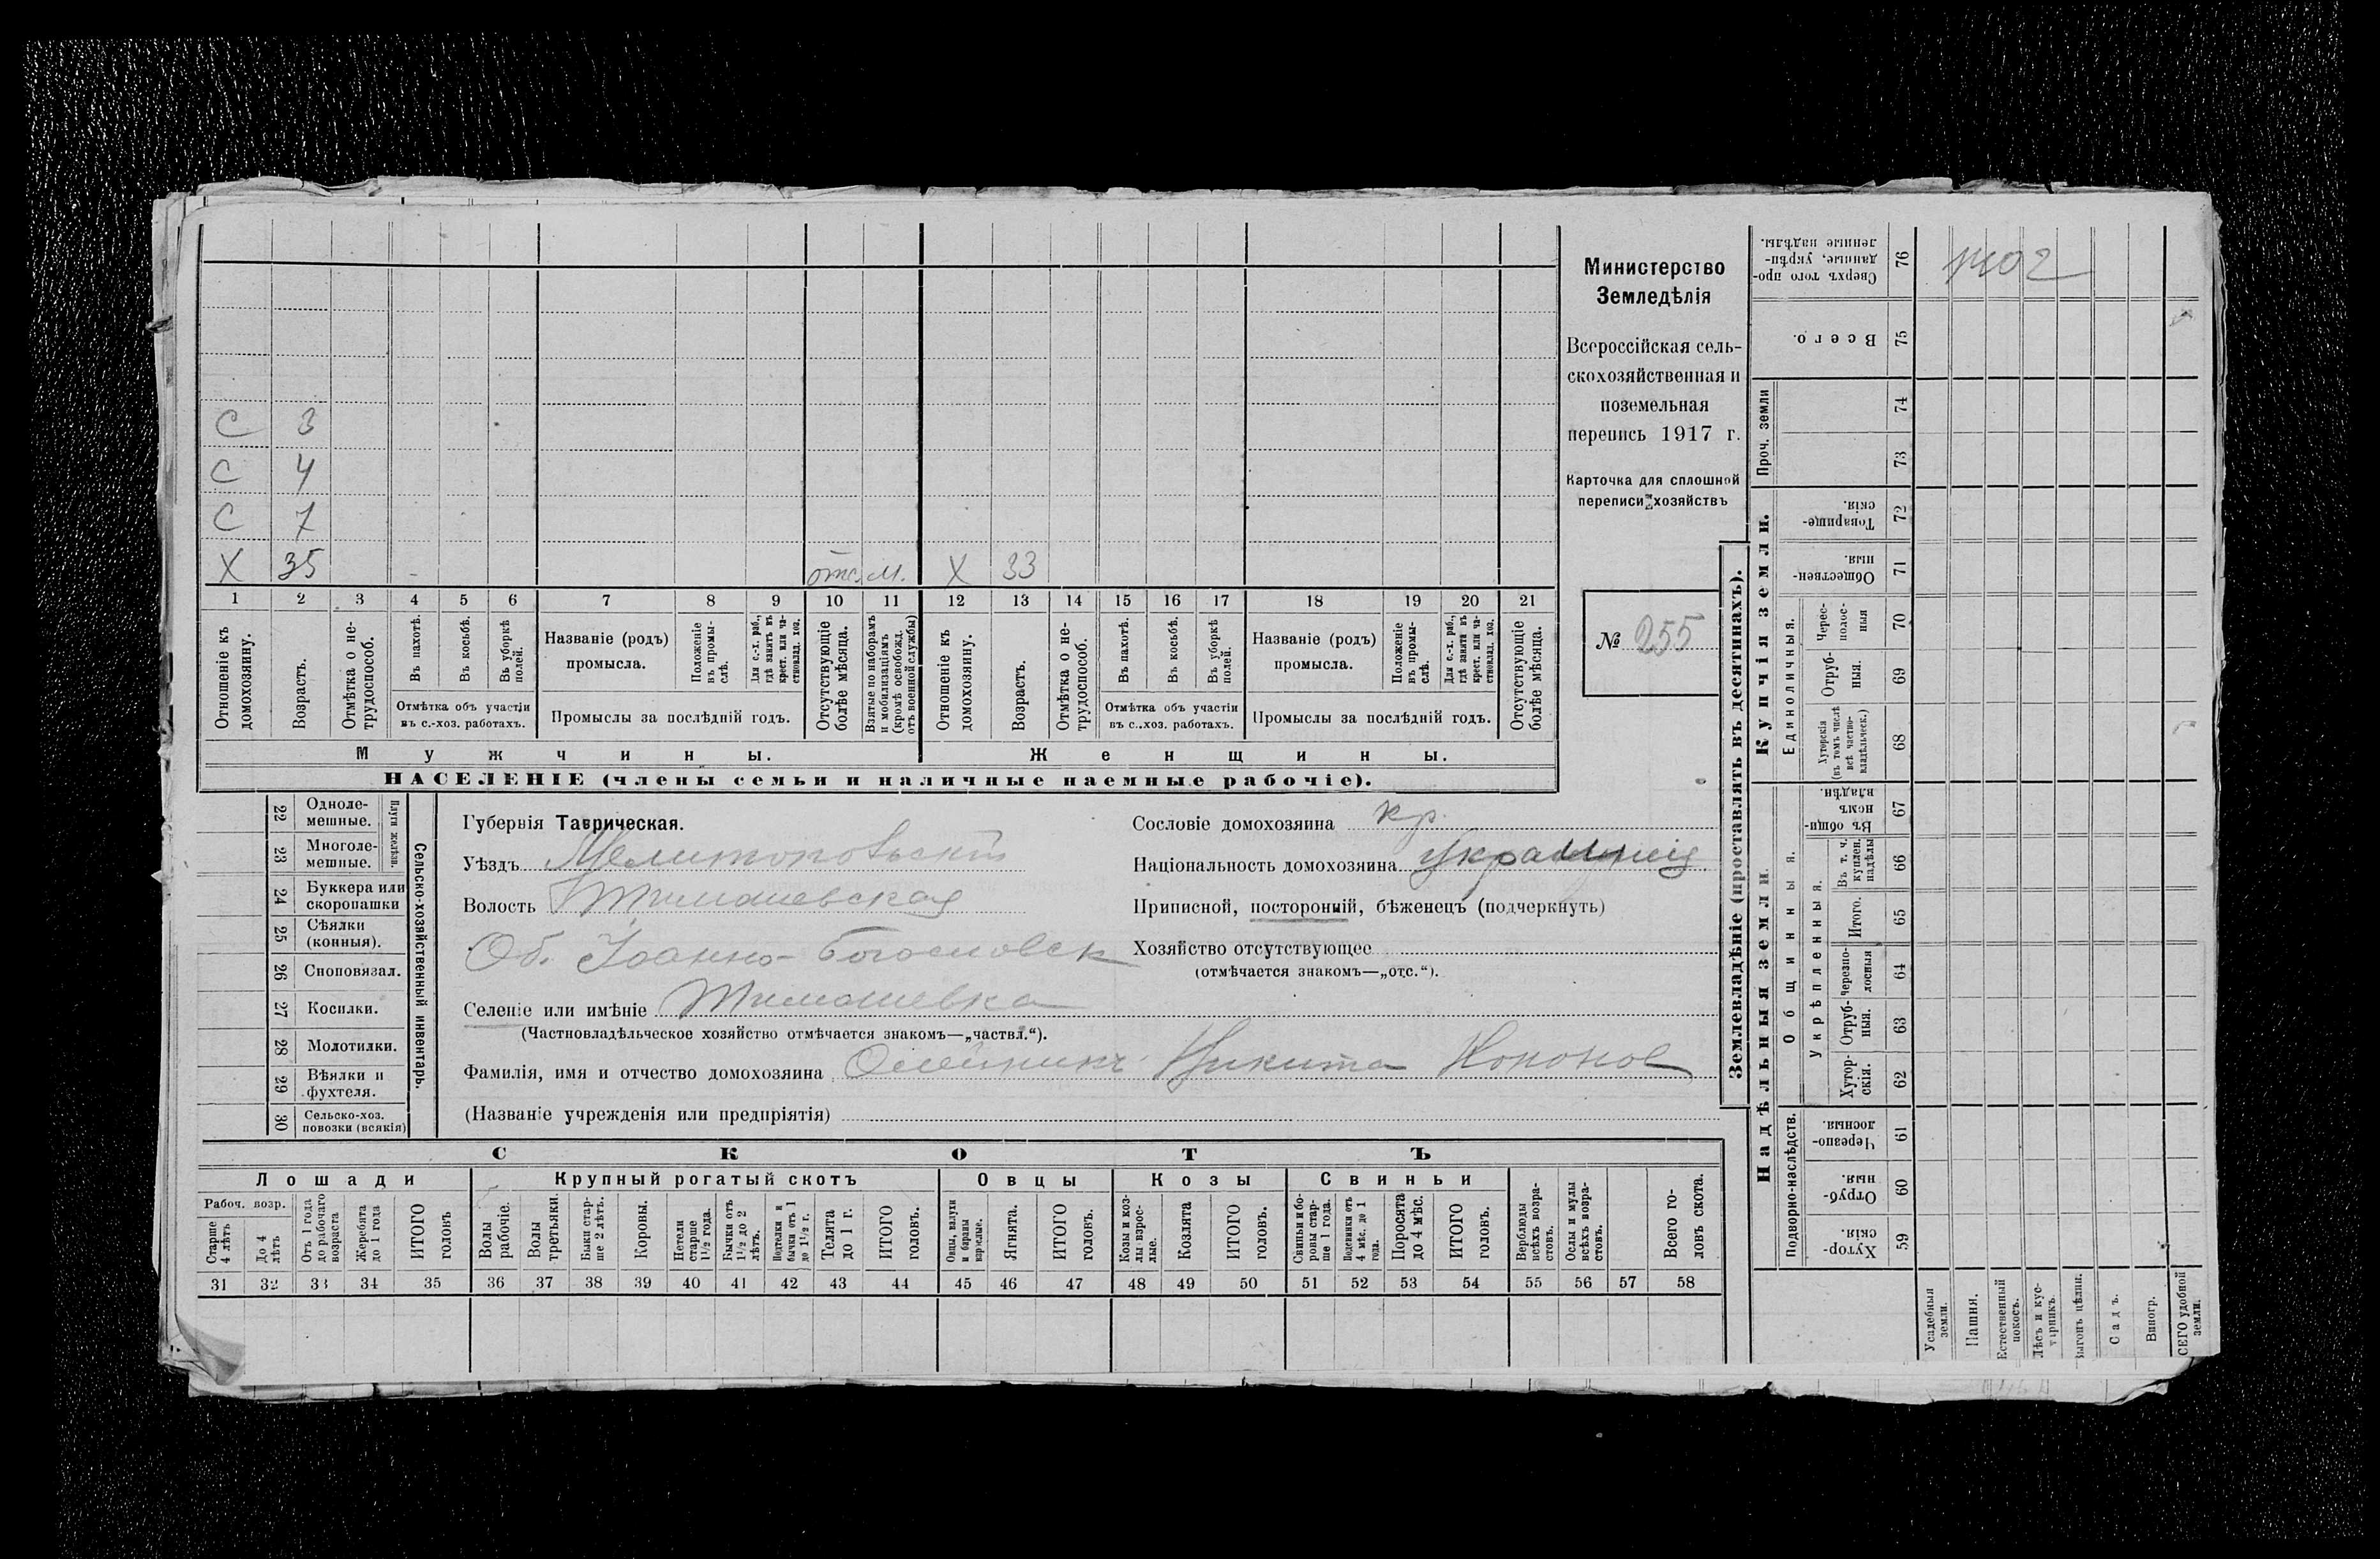 С 3
С 4
С 7
Х 35 отс. М. Х 33
1 2 3 4 5 6 7 8 9 10 11 12 13 14 15 16 17 18 19 20 21
Отношеніе къ домохозяину.
Возрастъ.
Отмѣтка о не-
трудоспособ.
Въ пахотѣ.
Въ косьбѣ.
Въ уборкѣ
полей.
Отмѣтка объ участіи
въ с.-хоз. работахъ.
Названіе (родъ)
промысла.
Положеніе
въ промы-
слѣ.
Для с.-х. раб.,
гдѣ занятъ въ
крест. или ча-
стновлад. хоз.
Промыслы за послѣдній годъ.
Отсутствующіе
болѣе мѣсяца.
Взятые по наборамъ
и мобилизаціямъ
(кромѣ освобожд.
отъ военной службы)
Отношеніе къ
домохозяину.
Возрастъ.
Отмѣтка о не-
трудоспособ.
Въ пахотѣ.
Въ косьбѣ.
Въ уборкѣ
полей.
Отмѣтка объ участіи
въ с.-хоз. работахъ.
Названіе (родъ)
промысла.
Положеніе
въ промы-
слѣ.
Для с.-х. раб.,
гдѣ заняты въ
крест. или ча-
стновлад. хоз.
Промыслы за послѣдній годъ.
Отсутствующіе
болѣе мѣсяца.
Мужчины. Женщины.
НАСЕЛЕНІЕ (члены семьи и наличные наемные рабочіе).
Министерство
Земледѣлія
Всероссійская сель-
скохозяйственная и
поземельная
перепись 1917 г.
Карточка для сплошной
переписи хозяйствъ
№ 255
22 Одноле-
мешные.
23 Многоле-
мешные.
Плуги желѣзн.
24 Буккера или
скоропашки
25 Сѣялки
(конныя).
26 Споповязал.
27 Косилки.
28 Молотилки.
29 Вѣялки и
фухтеля.
30 Сельско-хоз.
повозки (всякія)
Сельско-хозяйственный инвентарь.
Губернія Таврическая.
Уѣздъ Мелитопольскій
Волость Тимошевская
Об. Іоанно-Богословск
Селеніе или имѣніе Тимошевка
(Частновладѣльческое хозяйство отмѣчается знакомъ—„частвл.“).
Фамилія, имя и отчество домохозяина Олейникъ Никита Кононов
(Названіе учрежденія или предпріятія)
Сословіе домохозяина кр.
Національность домохозяина
Приписной, посторонній, бѣженецъ (подчеркнуть)
Хозяйство отсутствующее
(отмѣчается знакомъ—„отс.“).
СКОТЪ
Лошади Крупный рогатый скотъ Овцы Козы Свиньи
Рабоч. возр.
Старше
4 лѣтъ
До 4
лѣтъ
Отъ 1 года
до рабочаго
возраста
Жеребята
до 1 года
ИТОГО
головъ
Волы
рабочіе.
Волы
третьяки.
Быки стар-
ше 2 лѣтъ.
Коровы.
Нетели
старше
1½ года.
Бычки отъ
1½ до 2
лѣтъ.
Подтелки и
бычки отъ 1
до 1½ г.
Телята
до 1 г.
ИТОГО
головъ.
Овцы, валухи
и бараны
взрослые.
Ягнята.
ИТОГО
головъ.
Козы и коз-
лы взрос-
лые.
Козлята
ИТОГО
головъ.
Свиньи и бо-
ровы стар-
ше 1 года.
Подсвинки отъ
4 мѣс. до 1
года.
Поросята
до 4 мѣс.
ИТОГО
головъ.
Верблюды
всѣхъ возра-
стовъ.
Ослы и мулы
всѣхъ возра-
стовъ.
Всего го-
ловъ скота.
31 32 33 34 35 36 37 38 39 40 41 42 43 44 45 46 47 48 49 50 51 52 53 54 55 56 57 58
Землевладѣніе (проставлять въ десятинахъ).
Надѣльныя земли. Купчія земли.
Сверхъ того про-
данные, укрѣп-
ленные надѣлы.
76
1402
Всего.
75
Проч. земли
74
73
Товарище-
скія.
72
Обществен-
ныя.
71
Единоличныя.
Черес-
полос-
ныя
70
Отруб-
ныя.
69
Хуторскія
(въ томъ числѣ
всѣ частно-
владѣльческ.)
68
Общинныя.
Въ общи-
номъ
владѣн.
67
Укрѣпленныя.
Въ т. ч.
куплен.
надѣлы
66
Итого.
65
Черезпо-
лосныя
64
Отруб-
ныя.
63
Хутор-
скія.
62
Подворно-наслѣдств.
Черезпо-
лосныя.
61
Отруб-
ныя.
60
Хутор-
скія.
59
Усадебныя
земли.
Пашня.
Естественный
покосъ.
Лѣсъ и кус-
тарникъ.
Выгонъ цѣлин.
Садъ.
Виногр.
ВСЕГО удобной
земли.